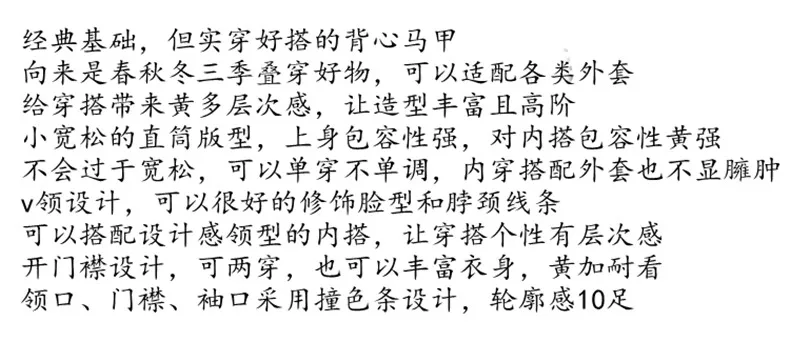 经典基础，但实穿好搭的背心马甲
向来是春秋冬三季叠穿好物，可以适配各类外套
给穿搭带来黄多层次感，让造型丰富且高阶
小宽松的直筒版型，上身包容性强，对内搭包容性黄强
不会过于宽松，可以单穿不单调，内穿搭配外套也不显臃肿
v领设计，可以很好的修饰脸型和脖颈线条
可以搭配设计感领型的内搭，让穿搭个性有层次感
开门襟设计，可两穿，也可以丰富衣身，黄加耐看
领口、门襟、袖口采用撞色条设计，轮廓感10足